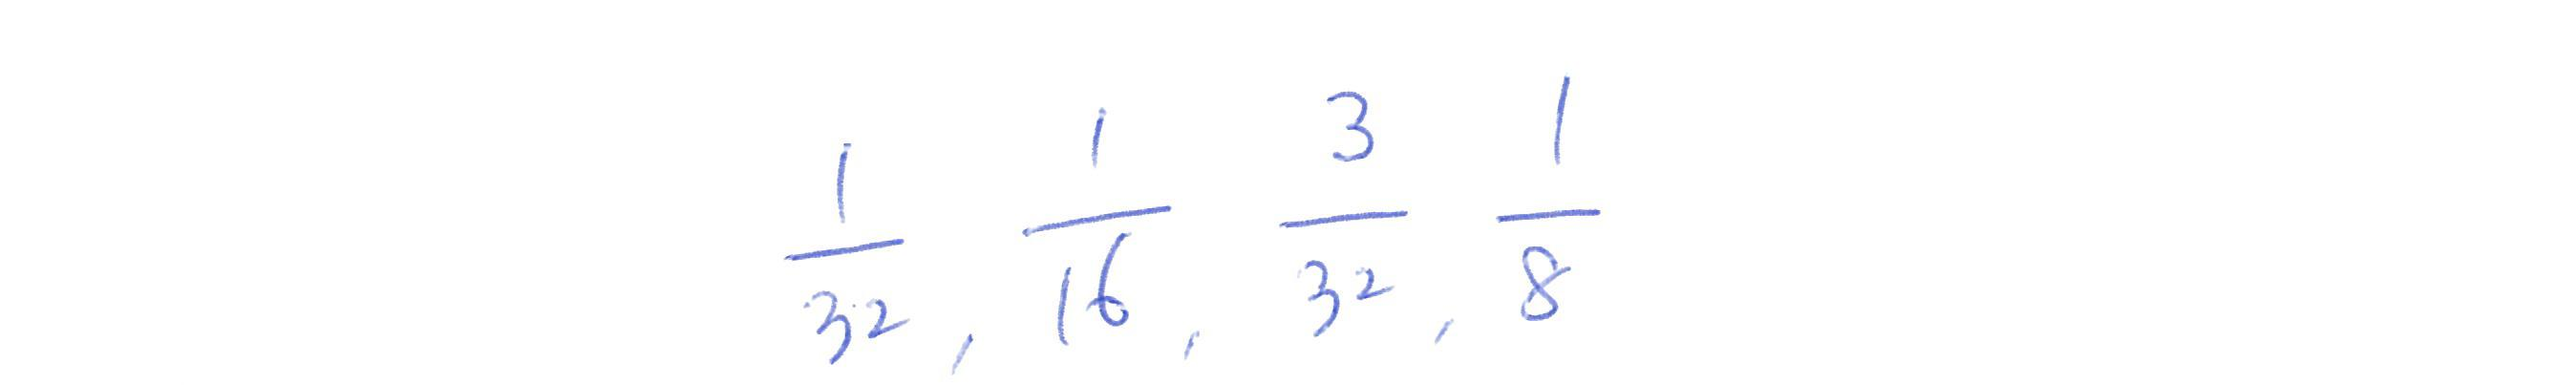 1/32, 1/16, 3/32, 1/8